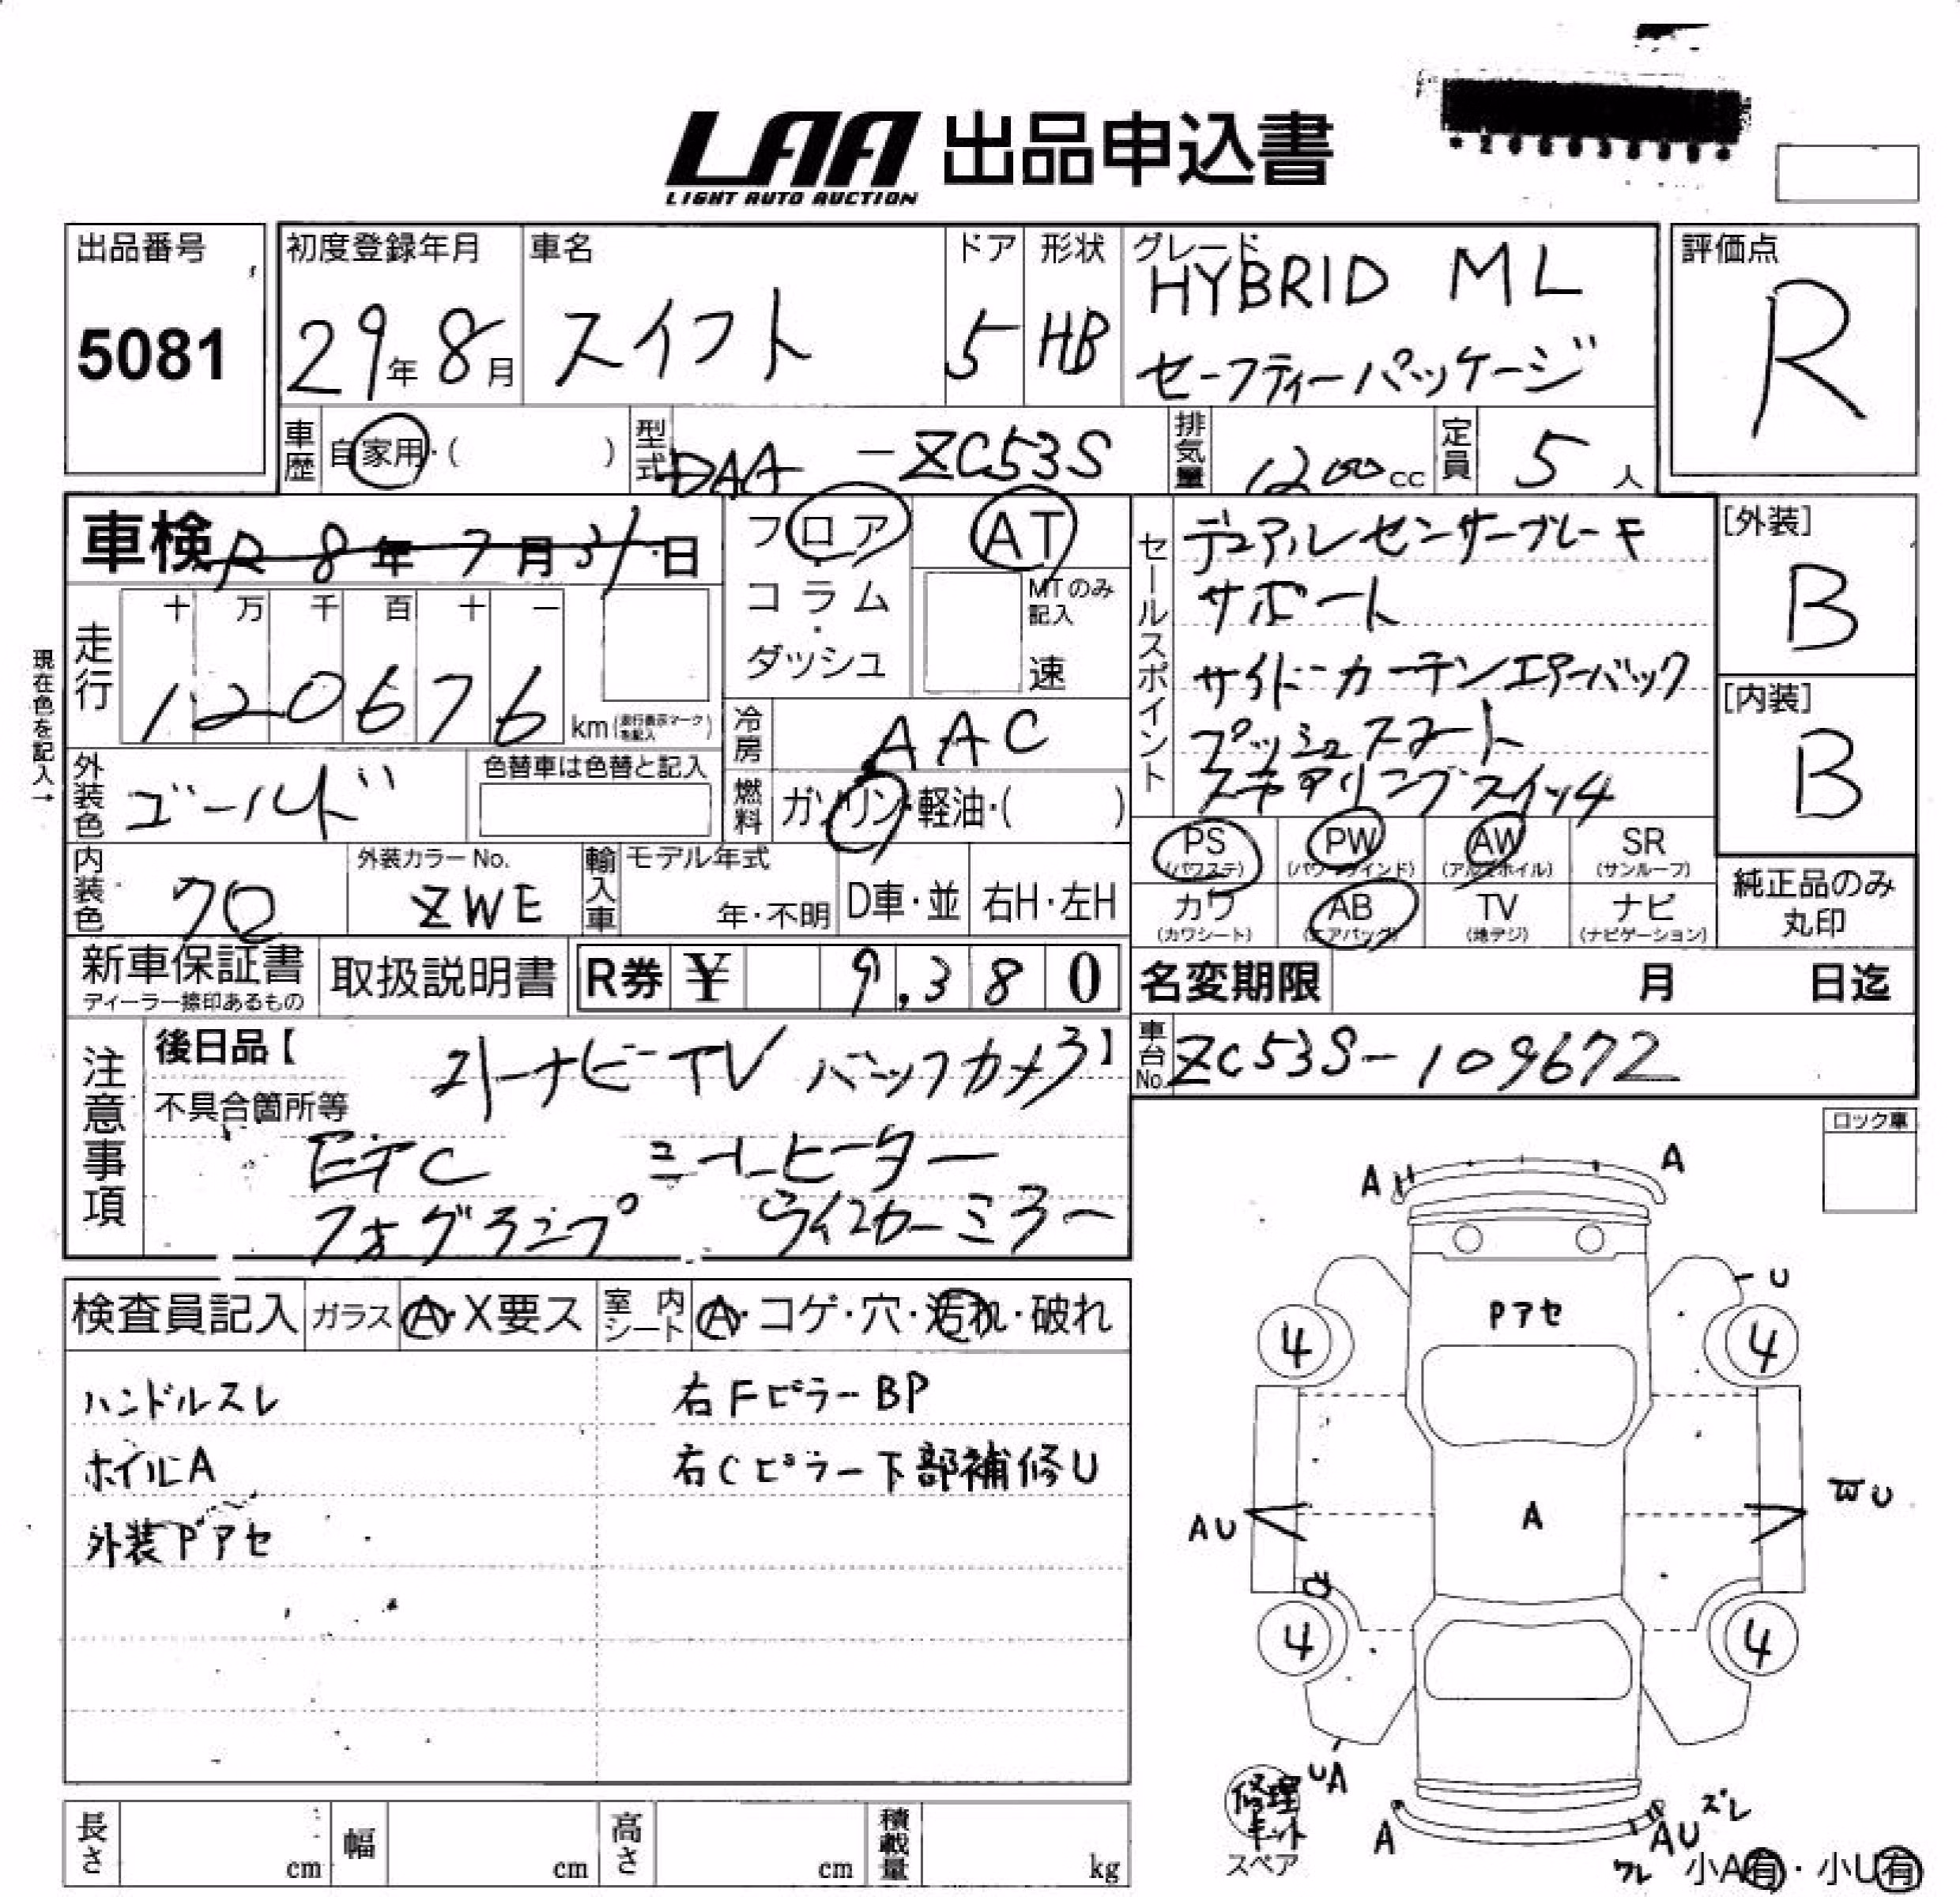 LAA 出品申込書
LIGHT AUTO AUCTION
出品番号
5081
初度登録年月
29年8月
車名
スイフト
ドア
5
形状
HB
グレード
HYBRID ML
セーフティーパッケージ
評価点
R
車歴
自家用・( )
型式
DAA -ZC53S
排気量
1200cc
定員
5人
車検 R8年7月31日
フロア
コラム
・
ダッシュ
AT
MTのみ
記入
速
走行
十 万 千 百 十 一
120676
km(走行表示マークを記入)
現在色を記入→
冷房
AAC
外装色
ゴールド
色替車は色替と記入
燃料
ガソリン・軽油・( )
セールスポイント
デュアルセンサーブレーキ
サポート
サイド・カーテンエアーバック
プッシュスタート
ステアリングスイッチ
[外装]
B
[内装]
B
PS
(パワステ)
PW
(パワーウインド)
AW
(アルミホイル)
SR
(サンルーフ)
カワ
(カワシート)
AB
(エアバッグ)
TV
(地デジ)
ナビ
(ナビゲーション)
純正品のみ
丸印
内装色
クロ
外装カラーNo.
ZWE
輸入車
モデル年式
年・不明
D車・並
右H・左H
新車保証書
ディーラー捺印あるもの
取扱説明書
R券 ¥ 9,380
名変期限 月 日迄
車台No.
ZC53S-109672
注意事項
後日品【
ストーナビーTV バックカメラ】
不具合箇所等
ETC シートヒーター
フォグランプ ウインカーミラー
ロック車
検査員記入
ガラス
A・X要ス
室内シート
A・コゲ・穴・汚れ・破れ
ハンドルスレ
右FピラーBP
ホイルA
右Cピラー下部補修U
外装Pアセ
A
A
U
Pアセ
4
4
AU
A
U
4
4
UA
修理キット
スペア
A
AU
ズレ
ワレ
小A有・小U有
長さ
cm
幅
cm
高さ
cm
積載量
kg